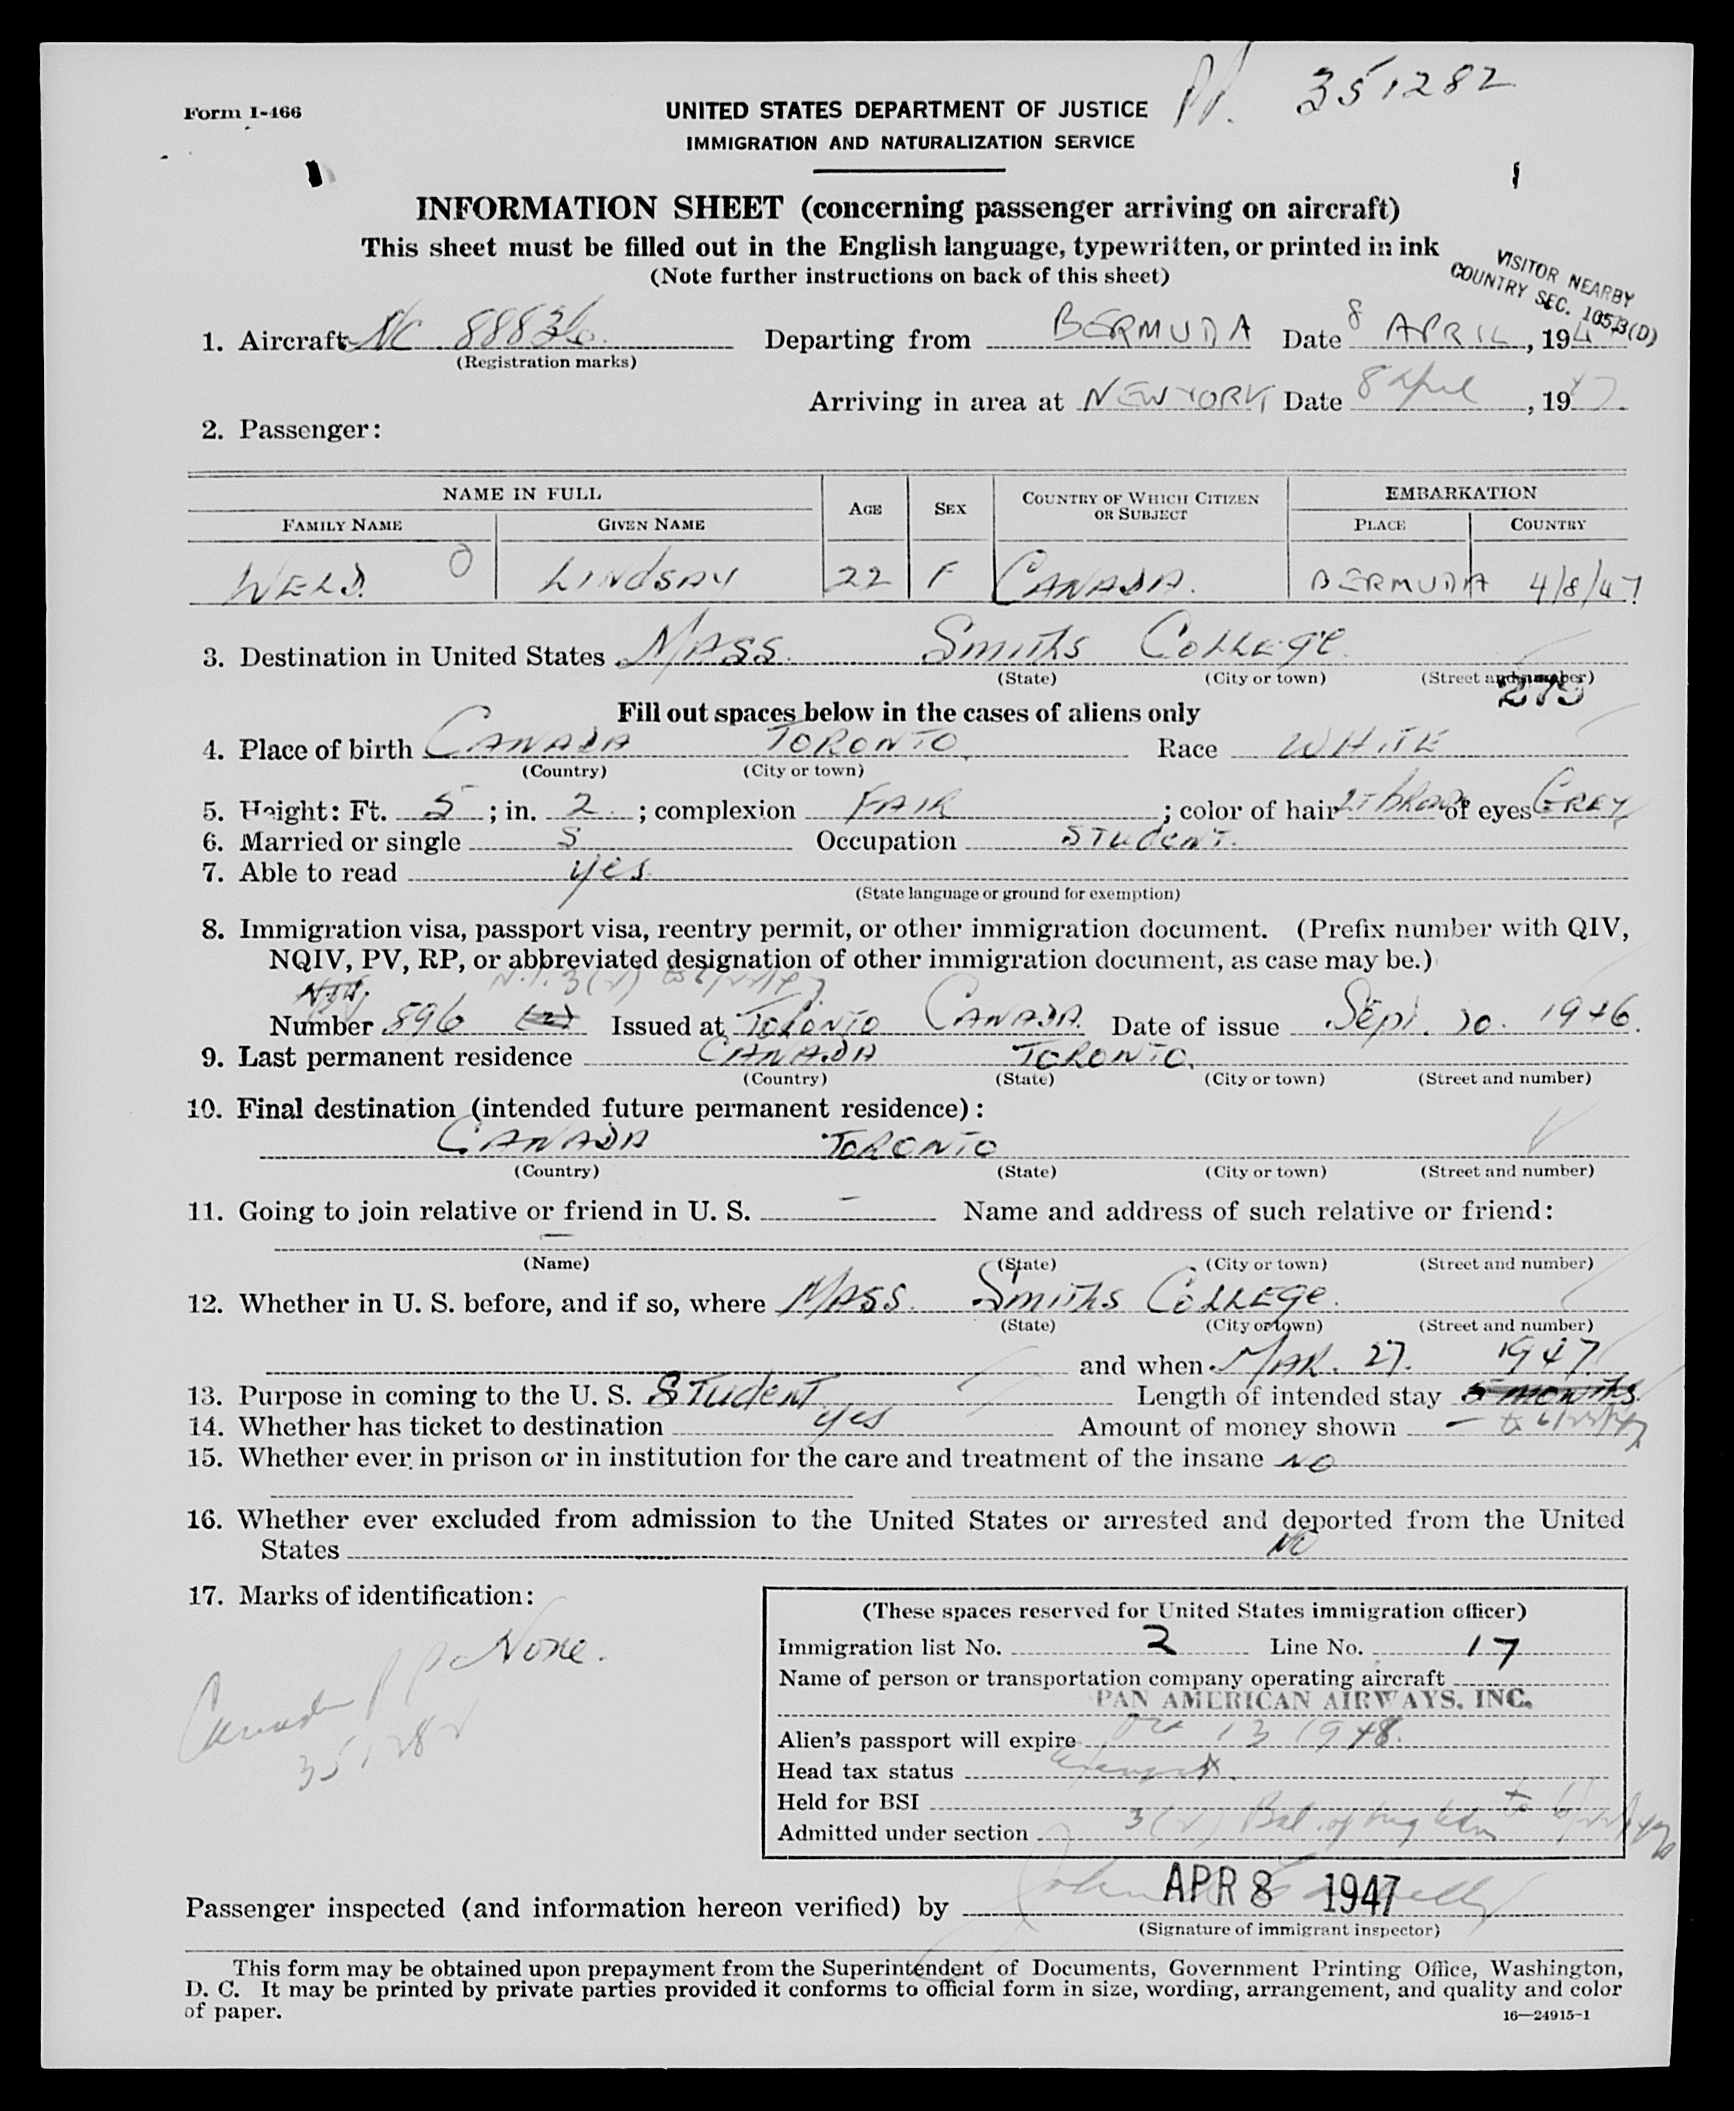 PP. 351282
Form I-466
UNITED STATES DEPARTMENT OF JUSTICE
IMMIGRATION AND NATURALIZATION SERVICE
INFORMATION SHEET (concerning passenger arriving on aircraft)
This sheet must be filled out in the English language, typewritten, or printed in ink
(Note further instructions on back of this sheet)
VISITOR NEARBY
COUNTRY SEC. 105.3(D)
1. Aircraft NC 88836 Departing from BERMUDA Date 8 APRIL, 194
(Registration marks)
Arriving in area at NEW YORK, Date 8 April, 1947.
2. Passenger:
NAME IN FULL AGE SEX COUNTRY OF WHICH CITIZEN OR SUBJECT EMBARKATION
FAMILY NAME GIVEN NAME PLACE COUNTRY
WELD LINDSAY 22 F CANADA. BERMUDA 4/8/47
3. Destination in United States MASS. SMITHS COLLEGE.
(State) (City or town) (Street and number)
279
Fill out spaces below in the cases of aliens only
4. Place of birth CANADA TORONTO, Race WHITE
(Country) (City or town)
5. Height: Ft. 5 ; in. 2 ; complexion FAIR ; color of hair LT brown of eyes GREY
6. Married or single S Occupation STUDENT.
7. Able to read yes.
(State language or ground for exemption)
8. Immigration visa, passport visa, reentry permit, or other immigration document. (Prefix number with QIV,
NQIV, PV, RP, or abbreviated designation of other immigration document, as case may be.)
Number 896 (2) Issued at TORONTO CANADA Date of issue Sept. 20. 1946.
9. Last permanent residence CANADA TORONTO.
(Country) (State) (City or town) (Street and number)
10. Final destination (intended future permanent residence):
CANADA TORONTO
(Country) (State) (City or town) (Street and number)
11. Going to join relative or friend in U. S. – Name and address of such relative or friend:
—
(Name) (State) (City or town) (Street and number)
12. Whether in U. S. before, and if so, where MASS. SMITHS COLLEGE.
(State) (City or town) (Street and number)
and when MAR. 27. 1947.
13. Purpose in coming to the U. S. STUDENT. Length of intended stay 5 MONTHS.
14. Whether has ticket to destination yes Amount of money shown — to 6/22/47
15. Whether ever in prison or in institution for the care and treatment of the insane NO
16. Whether ever excluded from admission to the United States or arrested and deported from the United
States NO
17. Marks of identification:
None.
Canadian PP
351282
(These spaces reserved for United States immigration officer)
Immigration list No. 2 Line No. 17
Name of person or transportation company operating aircraft
PAN AMERICAN AIRWAYS, INC.
Alien's passport will expire Oct 13 1948.
Head tax status exempt.
Held for BSI
Admitted under section 3(2) Bal. of orig adm to 6/22/47
APR 8 1947
Passenger inspected (and information hereon verified) by John
(Signature of immigrant inspector)
This form may be obtained upon prepayment from the Superintendent of Documents, Government Printing Office, Washington,
D. C. It may be printed by private parties provided it conforms to official form in size, wording, arrangement, and quality and color
of paper.
16—24915-1